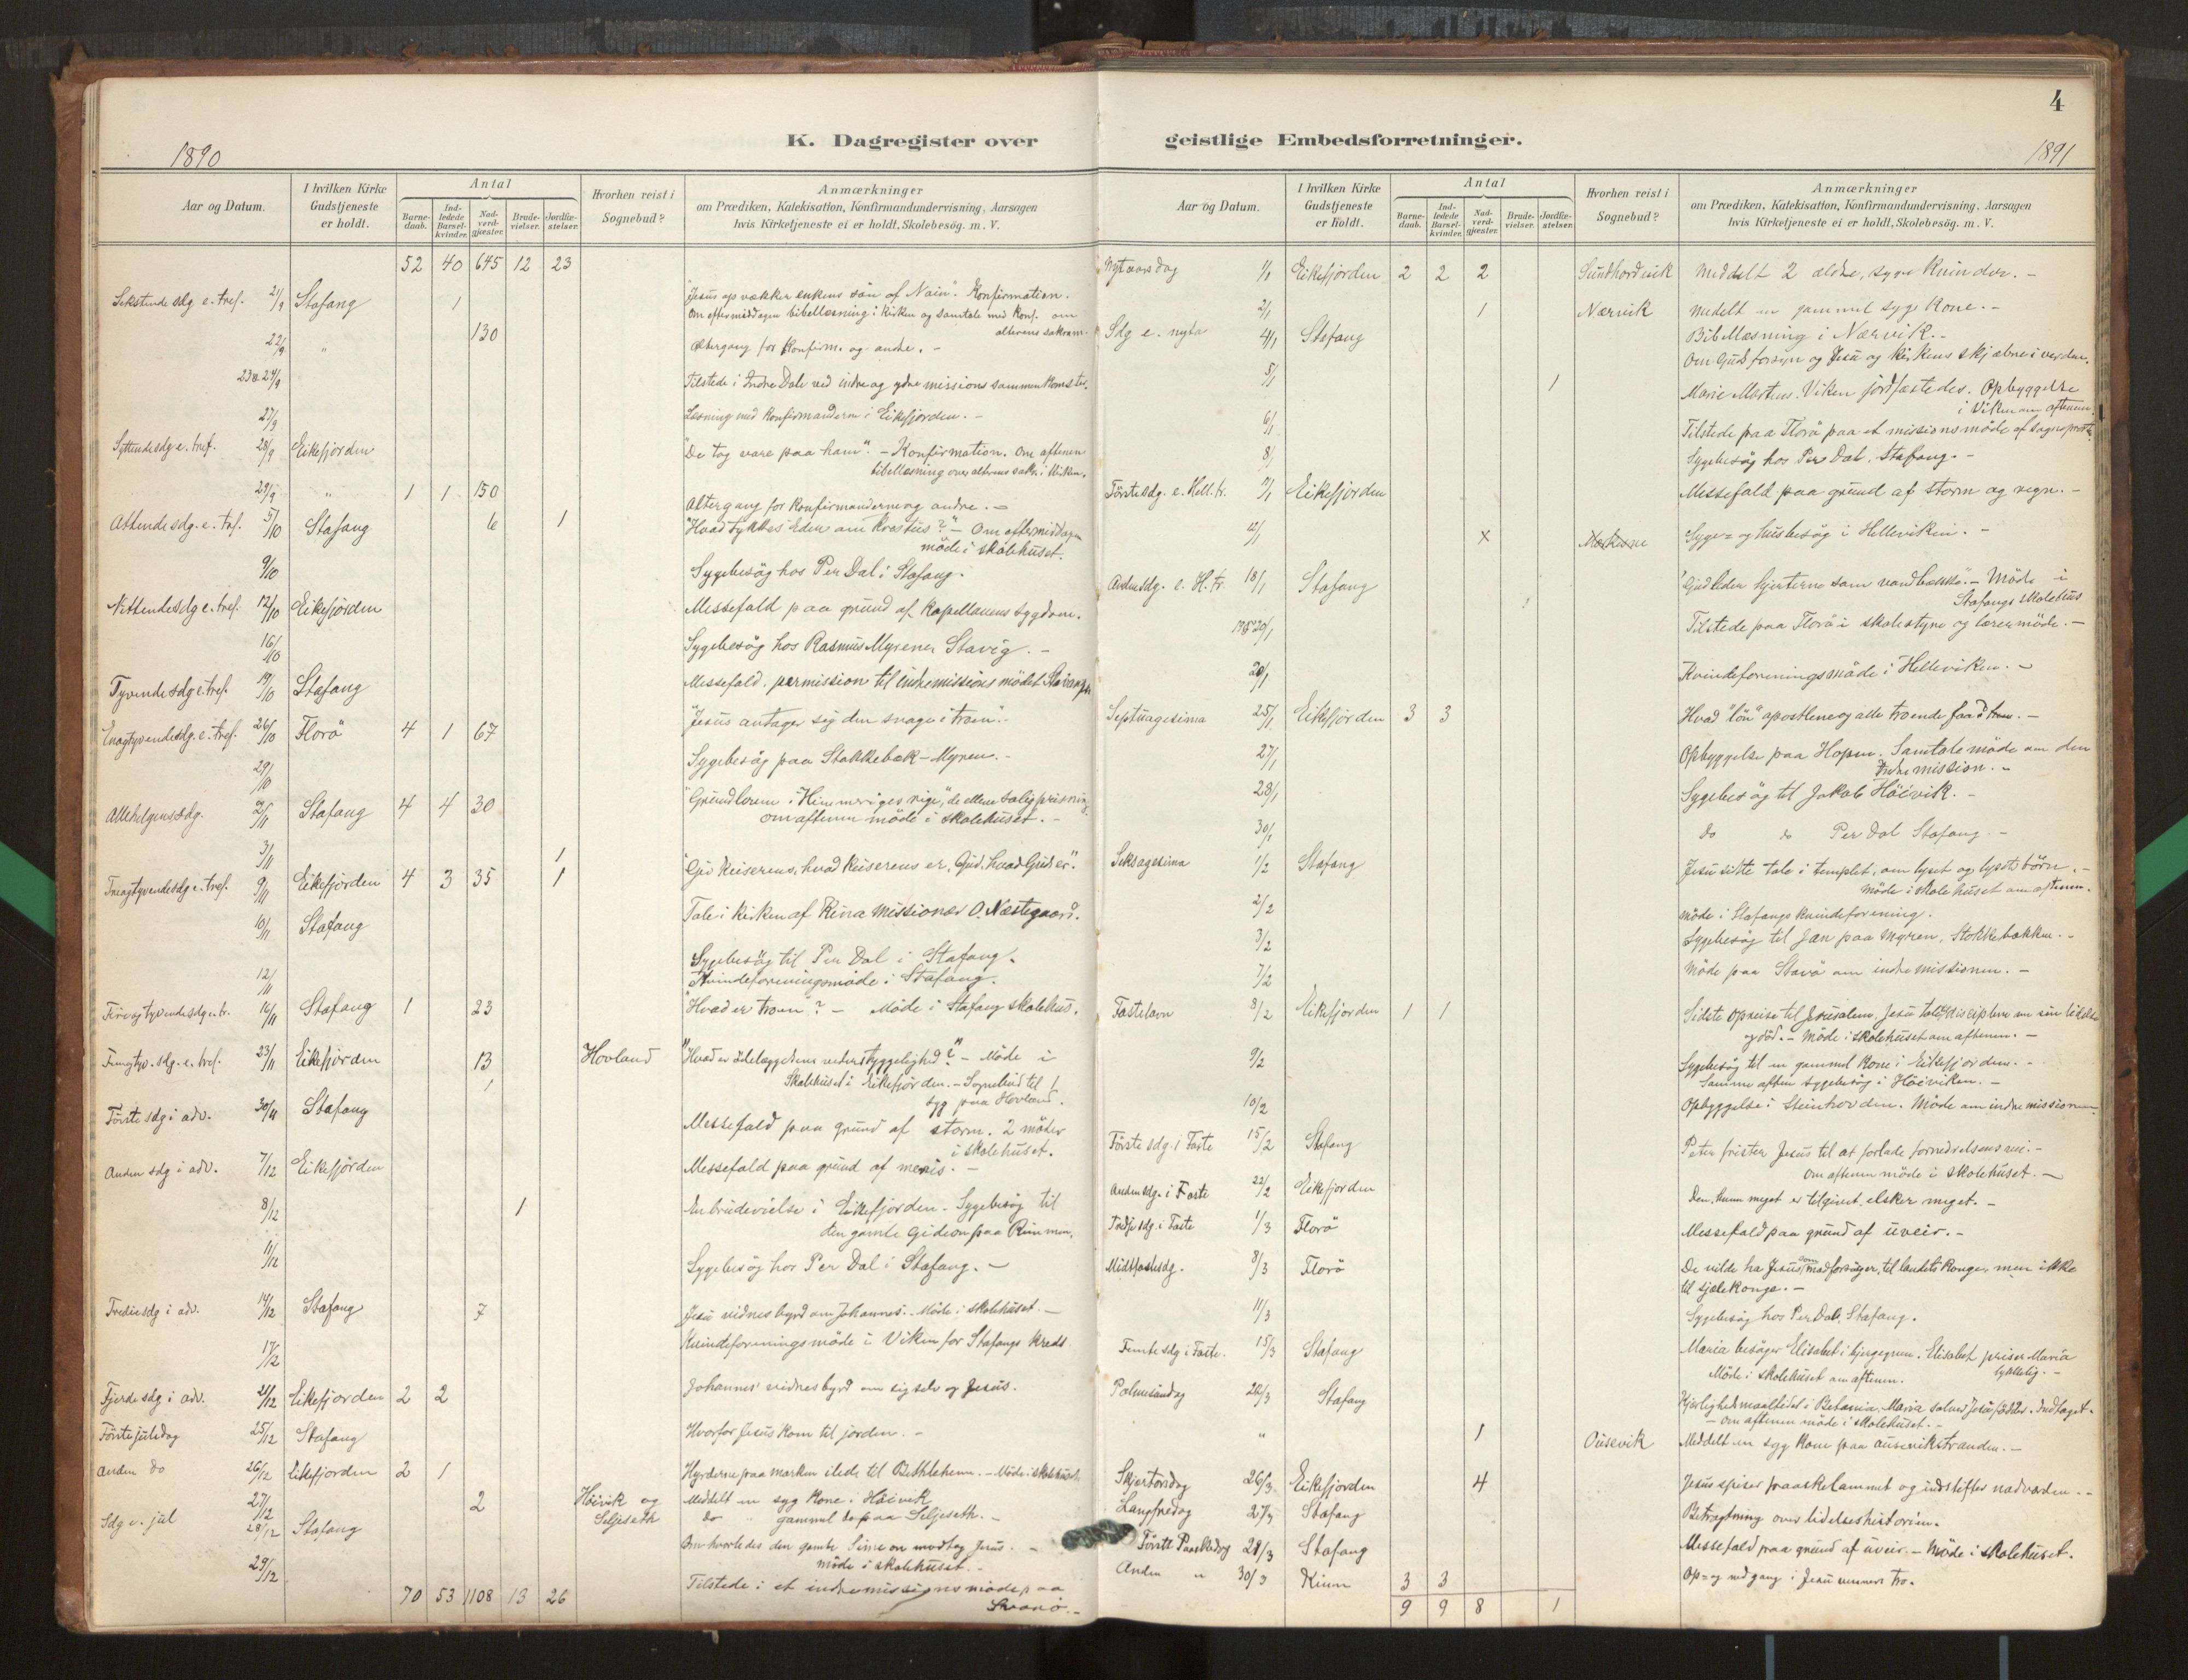 4
K. Dagregister over geistlige Embedsforretninger.
1890
Aar og Datum.
I hvilken Kirke Gudstjeneste er holdt.
Antal
Barne-daab.
Ind-ledede Barsel-kvinder.
Nad-verd-gjæster.
Brude-vielser.
Jordfæ-stelser.
Hvorhen reist i Sognebud?
Anmærkninger
om Prædiken, Katekisation, Konfirmandundervisning, Aarsagen
hvis Kirketjeneste ei er holdt, Skolebesög. m. V.
52 40 645 12 23
Sekstende sdg e. tref. 21/9 Stafang 1 "Jesus opvækker enkens sön af Nain". Konfirmation.
Om eftermiddagen bibellæsning i kirken og samtale med konf. om
alterens sakram.
22/9 " 130 Altergang for konfirm. og andre. -
23 & 24/9 Tilstede i Indre Dale ved indre og ydre missions sammenkomster.
27/9 Læsning med konfirmanderne i Eikefjorden. -
Syttende sdg e. tref. 28/9 Eikefjorden "De tog vare paa ham". - Konfirmation. Om aftenen
bibellæsning over alterens sakr. i Viken.
29/9 " 1 1 150 Altergang for konfirmanderne og andre. -
Attende sdg. e. tref. 5/10 Stafang 6 1 "Hvad tykkes Eder om Kristus?" - Om eftermiddagen
möde i skolehuset.
9/10 Sygebesög hos Per Dal i Stafang.
Nittende sdg e. tref. 12/10 Eikefjorden Messefald paa grund af kapellanens sygdom.
16/10 Sygebesög hos Rasmus Myrene, Stavig. -
Tyvende sdg e. tref. 19/10 Stafang Messefald. permission til indremissions mödet Stavanger
Enogtyvende sdg. e. tref. 26/10 Florö 4 1 67 "Jesus antager sig den svage i troen".
29/10 Sygebesög paa Stokkebæk-Myren. -
Allehelgens sdg. 2/11 Stafang 4 4 30 "Grundloven i "Himmeriges rige", de ellers saligprisning.
om aftenen möde i skolehuset. -
3/11 1
Treogtyvende sdg e. tref. 9/11 Eikefjorden 4 3 35 1 "Giv keiserens, hvad keiserens er, Gud, hvad Guds er".
10/11 Stafang Tale i kirken af Kina missionær O. Næstegaard.
12/11 Sygebesög til Per Dal i Stafang.
Kvindeforeningsmöde i Stafang.
Fireogtyvende sdg e. tr. 16/11 Stafang 1 23 "Hvad er troen"? - Möde i Stafang skolehus.
Femogtyv. sdg. e. tref. 23/11 Eikefjorden 13 Hovland "Hvad er ödelæggelsens vederstyggelighed?" - Möde i
1 Skolehuset i Eikefjorden. - Sognebud til 1
syg paa Hovland.
Förste sdg i adv. 30/11 Stafang Messefald paa grund af storm. 2 möder
i skolehuset.
Anden sdg i adv. 7/12 Eikefjorden Messefald paa grund af menis. -
8/12 1 En brudevielse i Eikefjorden - Sygebesög til
den gamle Gideon paa Rimmen.
11/12 Sygebesög hos Per Dal i Stafang. -
Tredie sdg i adv. 14/12 Stafang 7 Jesu vidnesbyrd om Johannes. Möde i skolehuset. -
17/12 Kvindeforeningsmöde i Viken for Stafangs kreds.
Fjerde sdg i adv. 21/12 Eikefjorden 2 2 Johannes' vidnesbyrd om sig selv og Jesus.
Förste juledag 25/12 Stafang Hvorfor Jesus kom til jorden. -
Anden do 26/12 Eikefjorden 2 1 Hyrderne paa marken ilede til Bethlehem. - Möde i skolehuset
27/12 2 Höivik og Seljeseth Meddelt en syg kone i Höivik
do " gammel do paa Seljeseth. -
Sdg e. jul 28/12 Stafang Om hvorledes den gamle Simeon modtog Jesus. -
möde i skolehuset. -
29/12 Tilstede i et indremissions möde paa
Svanö. -
70 53 1108 13 26
1891
Aar og Datum.
I hvilken Kirke Gudstjeneste er holdt.
Antal
Barne-daab.
Ind-ledede Barsel-kvinder.
Nad-verd-gjæster.
Brude-vielser.
Jordfæ-stelser.
Hvorhen reist i Sognebud?
Anmærkninger
om Prædiken, Katekisation, Konfirmandundervisning, Aarsagen
hvis Kirketjeneste ei er holdt, Skolebesög. m. V.
Nytaarsdag 1/1 Eikefjorden 2 2 2 Sundhordvik Meddelt 2 ældre, syge kvinder. -
2/1 1 Nærvik Medelt en gammel syg kone. -
Bibellæsning i Nærvik. -
Sdg e. nytaa 4/1 Stafang Om Guds forsyn og Jesu og kirkens skjæbne i verden.
5/1 1 Marie Martens. Viken jordfæstedes. Opbyggelse
i Viken om aftenen.
6/1 Tilstede paa Florö paa et missionsmöde af sogneprest
8/1 Sygebesög hos Per Dal. Stafang. -
Förste sdg. e. Hell. tr. 11/1 Eikefjorden Messefald paa grund af storm og regn. -
12/1 x Syge- og husbesög i Helleviken. -
Anden sdg. e. H. tr. 18/1 Stafang "Gud leder hjerterne som vandbække". - Möde i
Stafangs skolehus
19 & 20/1 Tilstede paa Florö i skolestyre og lærermöde. -
20/1 Kvindeforeningsmöde i Helleviken. -
Septuagesima 25/1 Eikefjorden 3 3 Hvad "lön" apostlene og alle troende faa d troen. -
27/1 Opbyggelse paa Hopen. Samtale möde om den
Indre mission. -
28/1 Sygebesög til Jakob Höivik. -
30/1 do do Per Dal Stafang. -
Seksagesima 1/2 Stafang Jesu sidste tale i templet, om lyset og lysets börn. -
möde i skolehuset om aftenen.
2/2 möde i Stafangs kvindeforening.
3/2 Sygebesög til Jan paa Myren, Stokkebækken. -
7/2 Möde paa Stavö om indre missionen. -
Fastelavn 8/2 Eikefjorden 1 1 Sidste opreise til Jerusalem. Jesu tale til disciplene om sin lidelse
og död. - Möde i skolehuset om aftenen. -
9/2 Sygebesög til en gammel kone i Eikefjorden. -
Samme aften sygebesög i Höiviken. -
10/2 Opbyggelse i Steinhovden. Möde om indre missionen.
Förste sdg. i Faste 15/2 Stafang Peter frister Jesus til at forlade fornedrelsens vei. -
Om aftenen möde i skolehuset. -
Anden sdg. i Faste 22/2 Eikefjorden Den, hvem meget er tilgivet, elsker meget. -
Tredje sdg. i Faste 1/3 Florö Messefald paa grund af uveir. -
Midtfastesdg. 8/3 Florö De vilde ha Jesus som madforsörger, til landets konge, men ikke
til sjælekonge. -
11/3 Sygebesög hos Per Dal, Stafang.
Femte sdg i Faste. 15/3 Stafang Maria besöger Elisabet i bjergegnen. Elisabet priser Maria
lykkelig. -
Möde i skolehuset om aftenen.
Palmesöndag 22/3 Stafang Kjærlighedsmaaltidet i Betania. Maria salver Jesu födder. Indtoget.
- om aftenen möde i skolehuset. -
" 1 Ousevik Meddelt en syg kone paa Ausevikstranden. -
Skjærtorsdag 26/3 Eikefjorden 4 Jesus spiser paaskelammet og indstifter nadverden. -
Langfredag 27/3 Stafang Betragtning over lidelseshistorien.
Förste Paaskedag 28/3 Stafang Messefald paa grund af uveir. - Möde i skolehuset.
Anden " 30/3 Kinn 3 3 Op- og nedgang i Jesu venners tro.
9 9 8 1